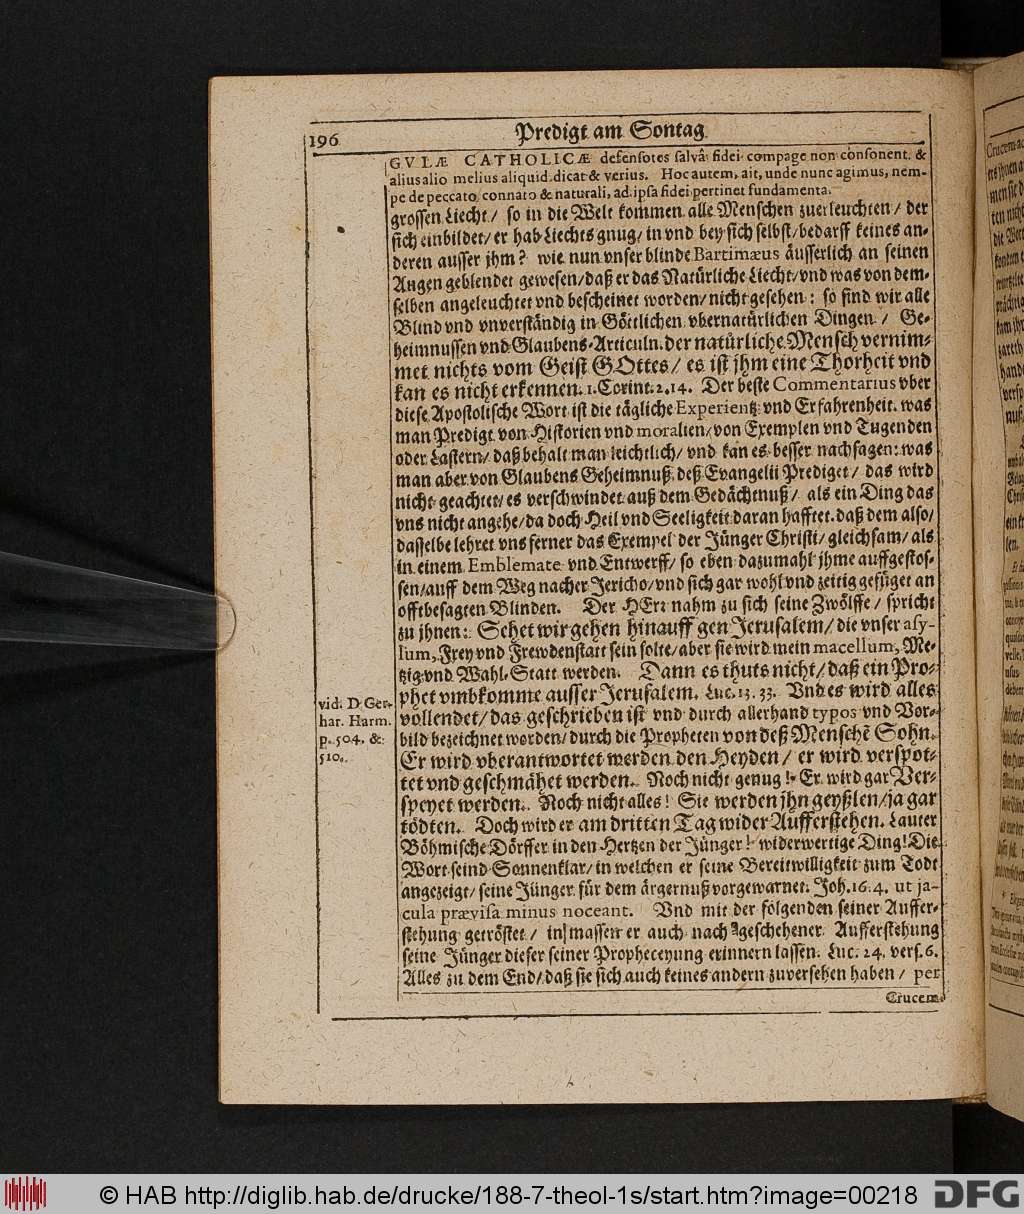 196
Predigt am Sontag
GVLÆ CATHOLICÆ defensores salvâ fidei compage non consonent. &
alius alio melius aliquid dicat & verius. Hoc autem, ait, unde nunc agimus, nem-
pe de peccato connato & naturali, ad ipsa fidei pertinet fundamenta.
grossen Liecht / so in die Welt kommen alle Menschen zuerleuchten / der
sich einbildet / er hab Liechts gnug / in vnd bey sich selbst / bedarff keines an-
deren ausser jhm? wie nun vnser blinde Bartimæus äusserlich an seinen
Augen geblendet gewesen / daß er das Natürliche Liecht / vnd was von dem-
selben angeleuchtet vnd bescheinet worden / nicht gesehen: so sind wir alle
Blind vnd vnverständig in Göttlichen vbernatürlichen Dingen / Ge-
heimnussen vnd Glaubens-Articuln. der natürliche Mensch vernim-
met nichts vom Geist GOttes / es ist jhm eine Thorheit vnd
kan es nicht erkennen. 1. Corint. 2. 14. Der beste Commentarius vber
diese Apostolische Wort ist die tägliche Experientz vnd Erfahrenheit. was
man Predigt von Historien vnd moralien / von Exemplen vnd Tugenden
oder Lastern / daß behalt man leichtlich / vnd kan es besser nachsagen: was
man aber von Glaubens Geheimnuß deß Evangelii Prediget / das wird
nicht geachtet / es verschwindet auß dem Gedächtnuß / als ein Ding das
vns nicht angehe / da doch Heil vnd Seeligkeit daran hafftet. daß dem also /
dasselbe lehret vns ferner das Exempel der Jünger Christi / gleichsam / als
in einem Emblemate vnd Entwerff / so eben dazumahl jhme auffgestos-
sen / auff dem Weg nacher Jericho / vnd sich gar wohl vnd zeitig gefüget an
offtbesagten Blinden. Der HErr nahm zu sich seine Zwölffe / spricht
zu jhnen: Sehet wir gehen hinauff gen Jerusalem / die vnser asy-
lum, Frey vnd Frewdenstatt sein solte / aber sie wird mein macellum, Me-
tzig vnd Wahl-Statt werden. Dann es thuts nicht / daß ein Pro-
phet vmbkomme ausser Jerusalem. Luc. 13. 33. Vnd es wird alles
vollendet / das geschrieben ist vnd durch allerhand typos vnd Vor-
bild bezeichnet worden / durch die Propheten von deß Menschẽ Sohn.
Er wird vberantwortet werden den Heyden / er wird verspot-
tet vnd geschmähet werden. Noch nicht genug! Er wird gar Ver-
speyet werden. Noch nicht alles! Sie werden jhn geyßlen / ja gar
tödten. Doch wird er am dritten Tag wider Aufferstehen. Lauter
Böhmische Dörffer in den Hertzen der Jünger! widerwertige Ding! Die
Wort seind Sonnenklar / in welchen er seine Bereitwilligkeit zum Todt
angezeigt / seine Jünger für dem ärgernuß vorgewarnet. Joh. 16. 4. ut ja-
cula prævisa minus noceant. Vnd mit der folgenden seiner Auffer-
stehung getröstet / in massen er auch nach geschehener Aufferstehung
seine Jünger dieser seiner Propheceyung erinnern lassen. Luc. 24. vers. 6.
Alles zu dem End / daß sie sich auch keines andern zuversehen haben / per
Crucem
vid. D. Ger-
har. Harm.
p. 504. &
510.
© HAB http://diglib.hab.de/drucke/188-7-theol-1s/start.htm?image=00218
DFG